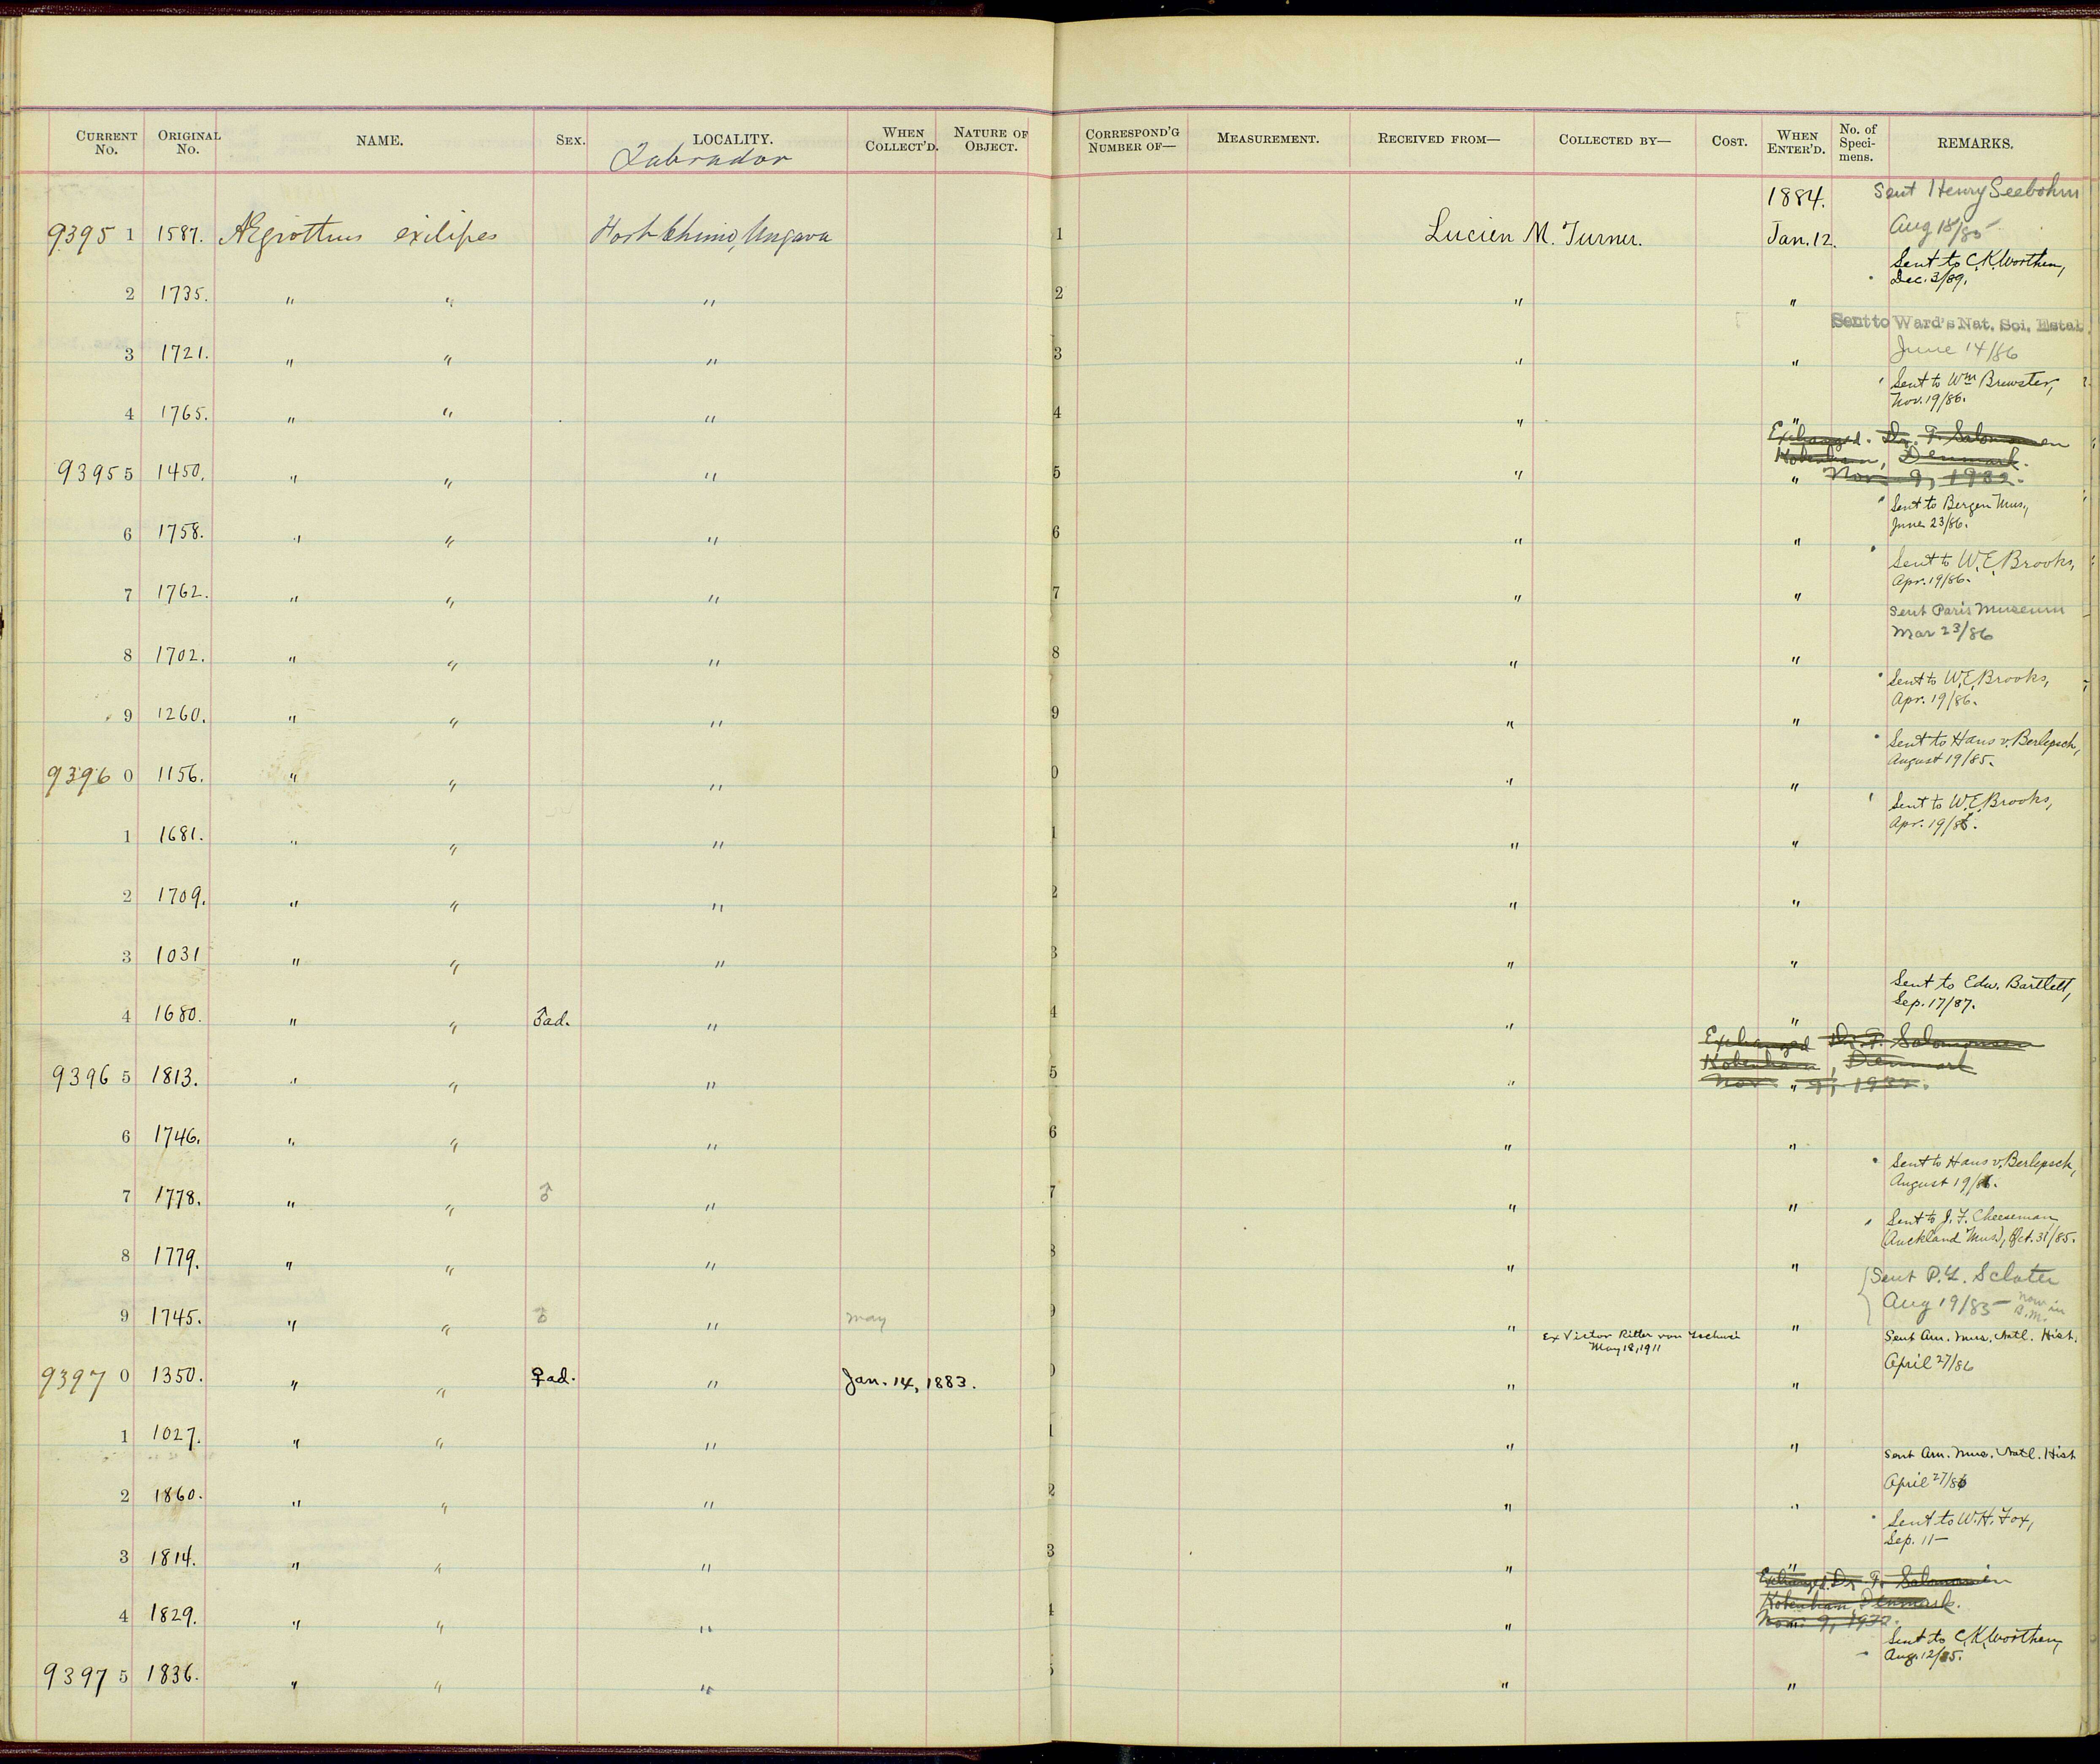 CURRENT No. ORIGINAL No. NAME. SEX. LOCALITY. WHEN COLLECT'D. NATURE OF OBJECT. CORRESPOND'G NUMBER OF— MEASUREMENT. RECEIVED FROM— COLLECTED BY— COST. WHEN ENTER'D. No. of Speci-mens. REMARKS.
Labrador
1884. Sent Henry Seebohm
93951 1587. Ægiothus exilipes Fort Chimo, Ungava 1 Lucien M. Turner. Jan. 12. Aug 18/85
Sent to C.K. Worthen,
Dec. 3/89.
2 1735. " " " 2 " "
Sent to Ward's Nat. Sci. Estab.
3 1721. " " " 3 " " June 14/86
Sent to Wm Brewster,
Nov. 19/86.
4 1765. " " " 4 " "
Exchanged. Dr. F. Salomonsen
Kobenhavn, Denmark.
93955 1450. " " " 5 " " Nov. 9, 1932.
Sent to Bergen Mus.,
June 23/86.
6 1758. " " " 6 " "
Sent to W.E. Brooks,
Apr. 19/86.
7 1762. " " " 7 " "
Sent Paris Museum
Mar 23/86
8 1702. " " " 8 " "
Sent to W.E. Brooks,
Apr. 19/86.
9 1260. " " " 9 " "
Sent to Hans v. Berlepsch,
August 19/85.
93960 1156. " " " 0 " "
Sent to W.E. Brooks,
Apr. 19/86.
1 1681. " " " 1 " "
2 1709. " " " 2 " "
3 1031 " " " 3 " "
Sent to Edw. Bartlett,
Sep. 17/87.
4 1680. " " ♂ad. " 4 " "
Exchanged Dr. F. Salomonsen
Kobenhavn, Denmark
93965 1813. " " " 5 " " Nov. 9, 1932.
6 1746. " " " 6 " "
Sent to Hans v. Berlepsch,
August 19/
7 1778. " " ♂ " 7 " "
Sent to J. F. Cheeseman
(Auckland Mus.), Oct. 31/85.
8 1779. " " " 8 " "
Sent P. L. Sclater
Aug 19/85 — now in B.M.
9 1745. " " ♂ " May 9 " "
Ex Victor Ritter von May 18, 1911
Sent Am. Mus. Natl. Hist.
April 27/86
93970 1350. " " ♀ad. " Jan. 14, 1883. 0 " "
1 1027. " " " 1 " "
Sent Am. Mus. Natl. Hist
April 27/86
2 1860. " " " 2 " "
Sent to W. H. Fox,
Sep. 11—
3 1814. " " " 3 " "
Exchanged Dr. F. Salomonsen
Kobenhavn, Denmark.
4 1829. " " " 4 " Nov. 9, 1932.
Sent to C.K. Worthen,
Aug. 12/85.
93975 1836. " " " 5 " "